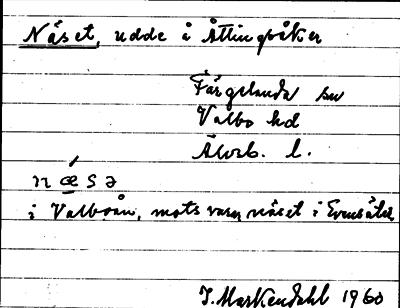 Näset, udde å Åttingsåker
Färgelanda sn
Valbo hd
Älvsb. l.
næ´sə
i Valboån, motsvarar näset i Evensäter
J. Markendahl 1960